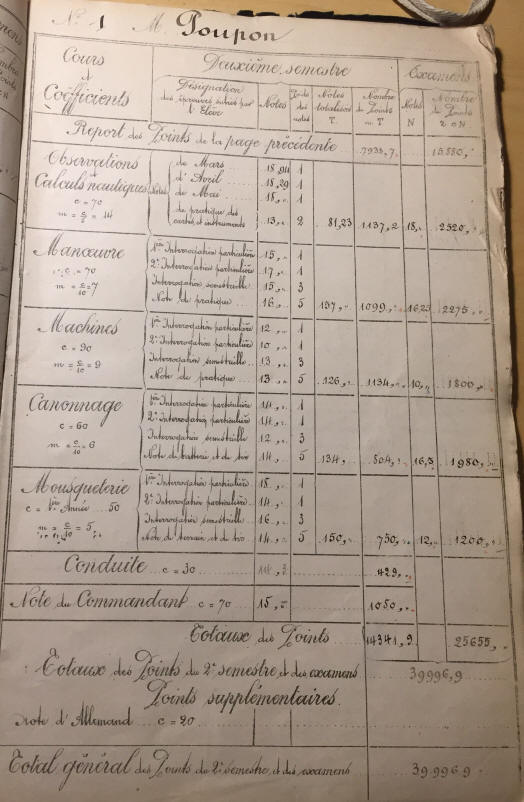 N° 1 M. Poupon
Cours et Coëfficients
Deuxième semestre
Examens
Désignation des épreuves subies par l'Elève
Notes
des notes
Notes totalisées T.
Nombre de Points m T
Notes N
Nombre de Points 2 c N
Report des Points de la page précédente 7933,7 15880,"
Observations et Calculs nautiques
c = 70
m = c/5 = 14
Notes
de Mars 18,94 1
d'Avril 18,29 1
de Mai 18," 1
de pratique des cartes et instruments 13," 2 81,23 1137,2 18," 2520,"
Manœuvre
c = 70
m = c/10 = 7
1ère Interrogation particulière 15," 1
2e Interrogation particulière 17," 1
Interrogation semestrielle 15," 3
Note de pratique 16," 5 157," 1099," 16,25 2275,"
Machines
c = 90
m = c/10 = 9
1ère Interrogation particulière 12," 1
2e Interrogation particulière 10," 1
Interrogation semestrielle 13," 3
Note de pratique 13," 5 126," 1134," 10," 1800,"
Canonnage
c = 60
m = c/10 = 6
1ère Interrogation particulière 14," 1
2e Interrogation particulière 14," 1
Interrogation semestrielle 12," 3
Note de batterie et de tir 14," 5 134," 804," 16,5 1980,"
Mousqueterie
c = 1ère Année 50
m = c/10 = 5,"
1ère Interrogation particulière 18," 1
2e Interrogation particulière 14," 1
Interrogation semestrielle 16," 3
Note de terrain et de tir 14," 5 150," 750," 12," 1200,"
Conduite c = 30 429,"
Note du Commandant c = 70 15," 1050,"
Totaux des Points 14341,9 25655,"
Totaux des Points du 2e semestre et des examens 39996,9
Points supplémentaires.
Note d'Allemand c = 20
Total général des Points du 2e semestre et des examens 39.996,9